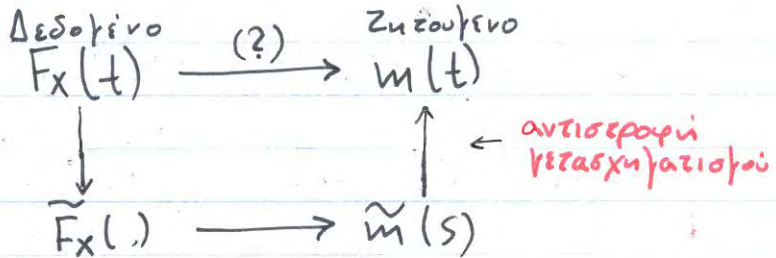 Δεδομένο Ζητούμενο
F_X(t) (?) → m(t)
← αντιστροφή
μετασχηματισμού
F̃_X(.) → m̃(s)